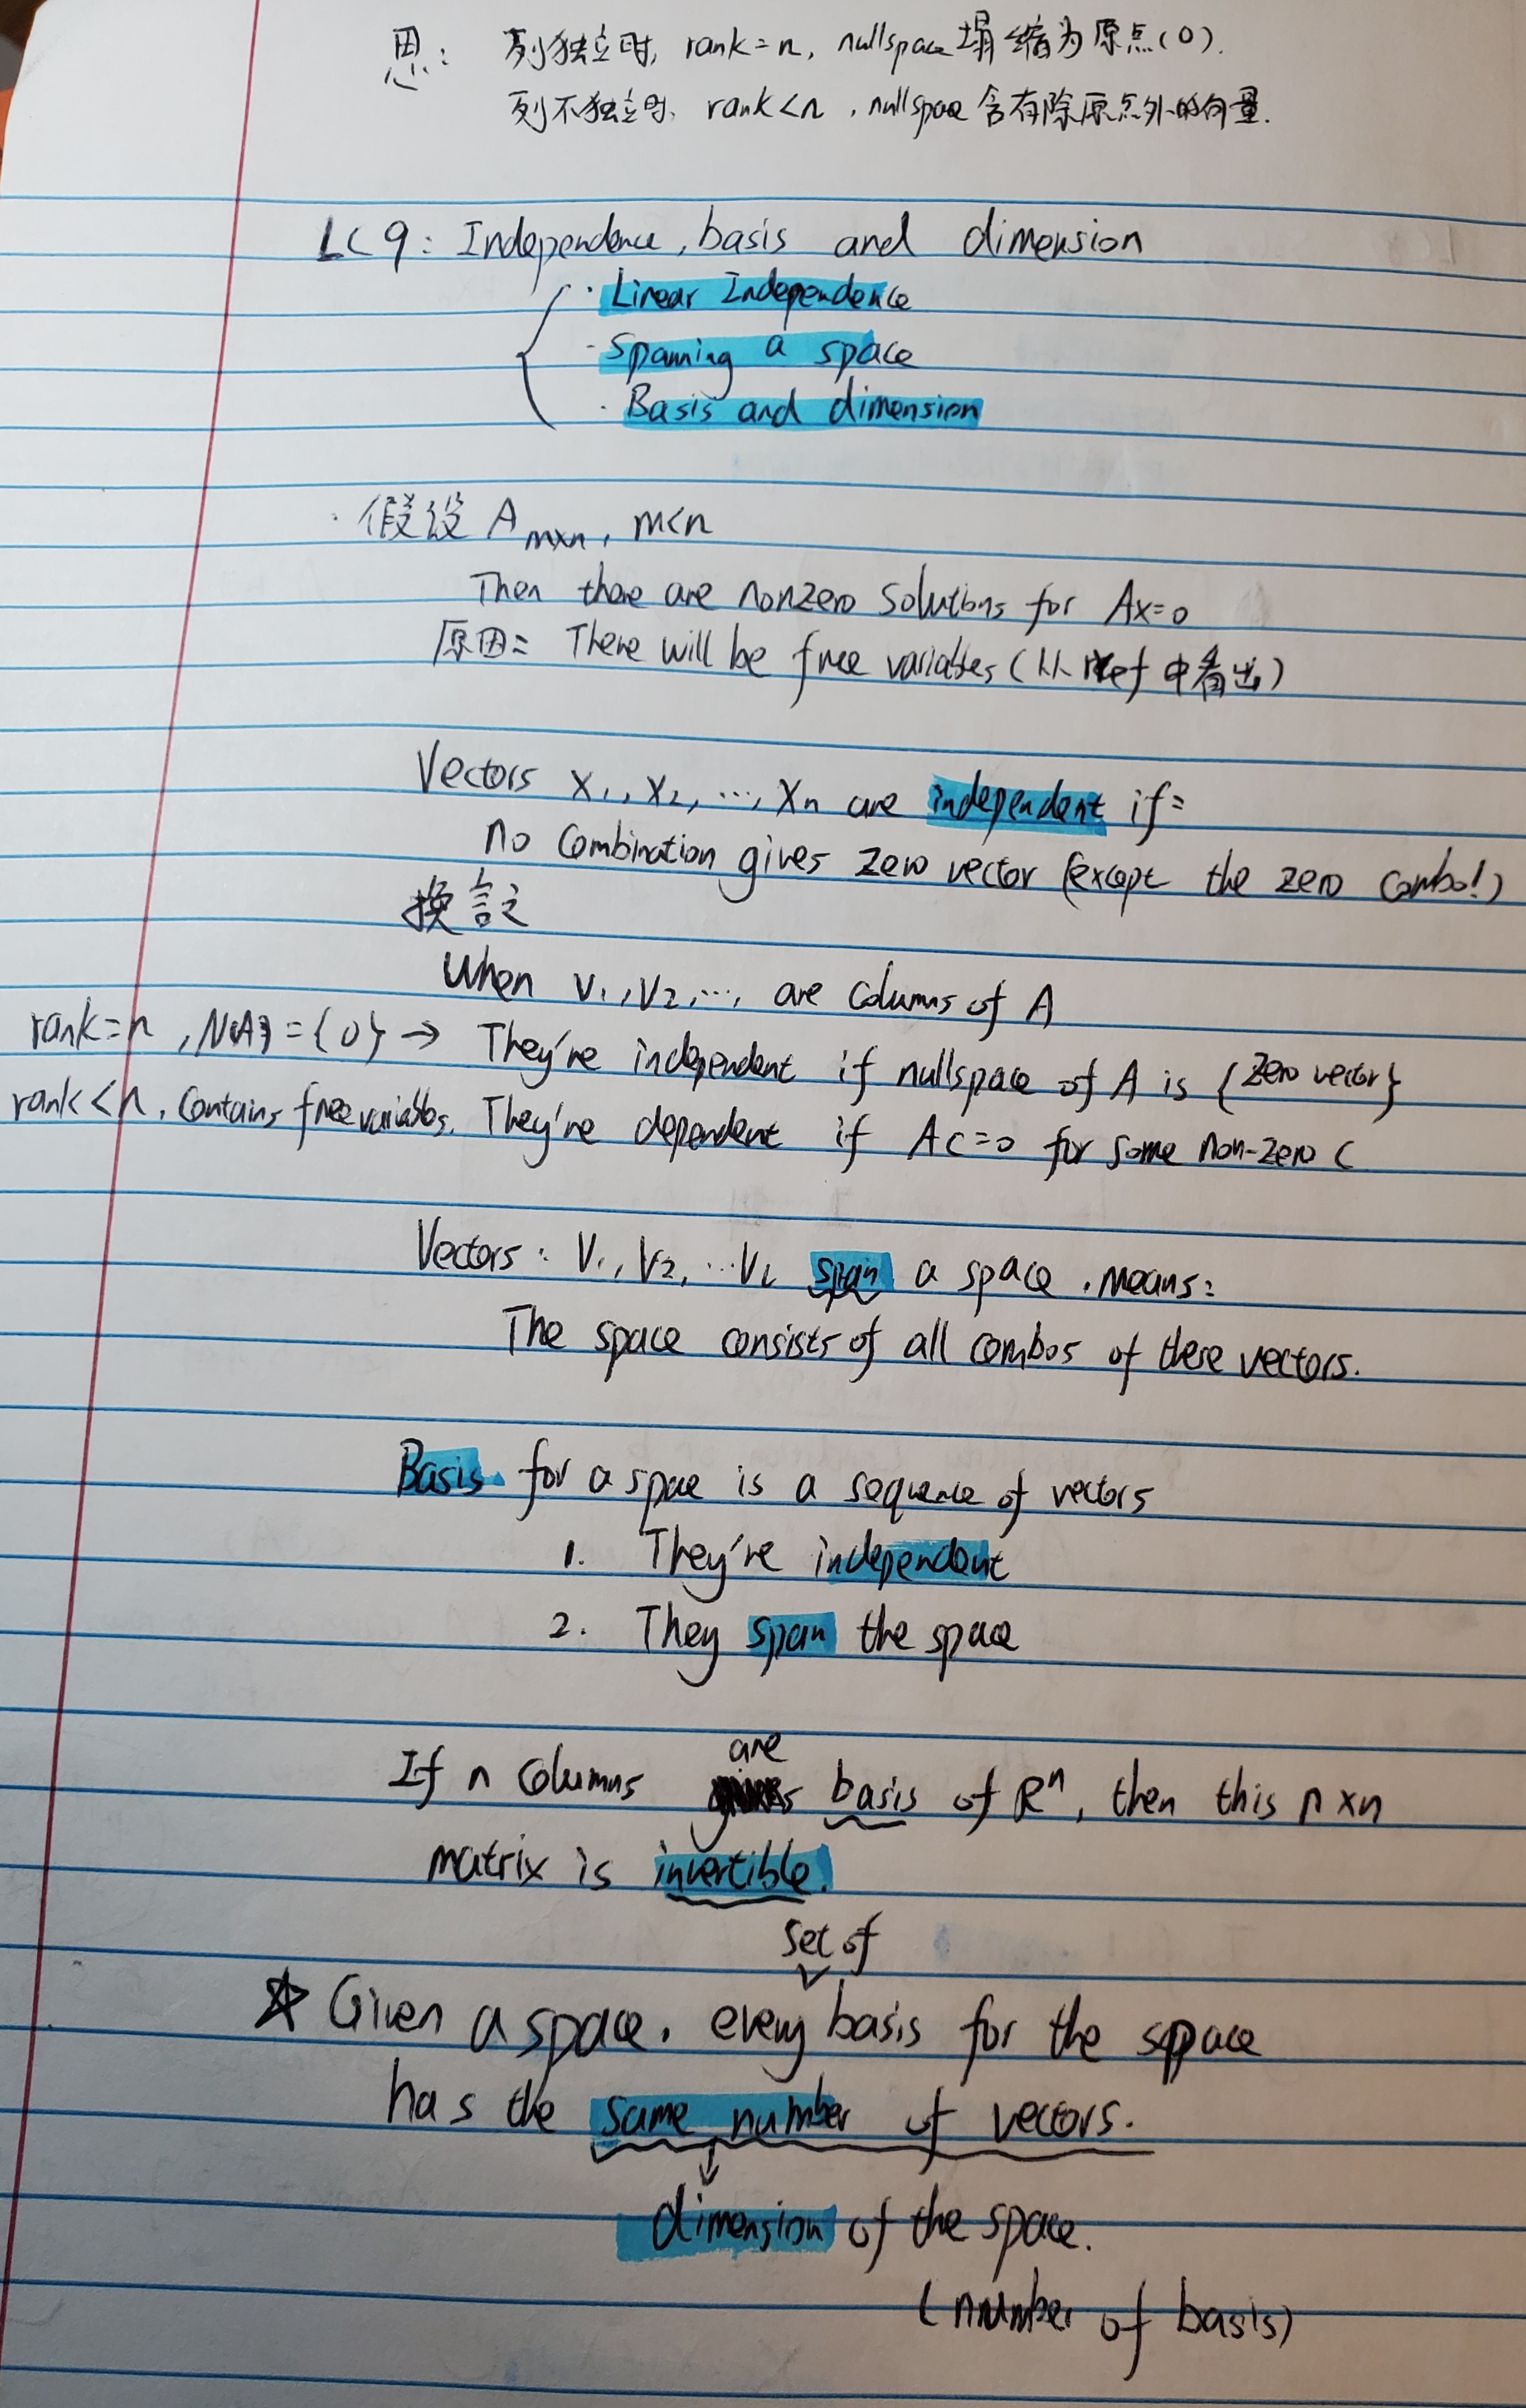 思: 列独立时, rank=n, nullspace塌缩为原点(0).
列不独立时, rank<n, nullspace含有除原点外的向量.
LC9: Independence, basis and dimension
· Linear Independence
- Spanning a space
· Basis and dimension
· 假设 Amxn, m<n
Then there are nonzero solutions for Ax=0
原因: There will be free variables (从 rref 中看出)
Vectors X1, X2, ..., Xn are independent if:
no combination gives zero vector (except the zero combo!)
换言之
When V1, V2, ..., are columns of A
rank=n, N(A)={0} → They're independent if nullspace of A is {zero vector}
rank<n, contains free variables. They're dependent if Ac=0 for some non-zero C
Vectors: V1, V2, ...VL span a space. means:
The space consists of all combos of these vectors.
Basis for a space is a sequence of vectors
1. They're independent
2. They span the space
are
If n columns basis of R^n, then this nxn
matrix is invertible.
set of
☆ Given a space, every basis for the space
has the same number of vectors.
↓
dimension of the space.
(number of basis)